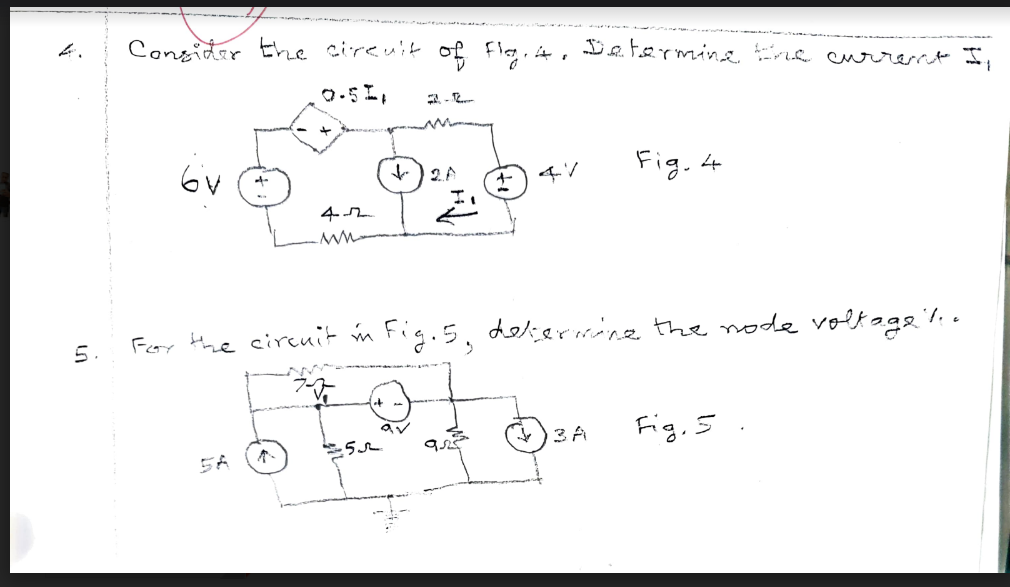 4. Consider the circuit of Fig. 4. Determine the current I₁
0.5I₁ 2Ω
- +
6V + - 2A + - 4V Fig. 4
I₁
4Ω
5. For the circuit in Fig. 5, determine the node voltage V₁.
7Ω
V₁ + -
9V
5A 5Ω 9Ω 3A Fig. 5.